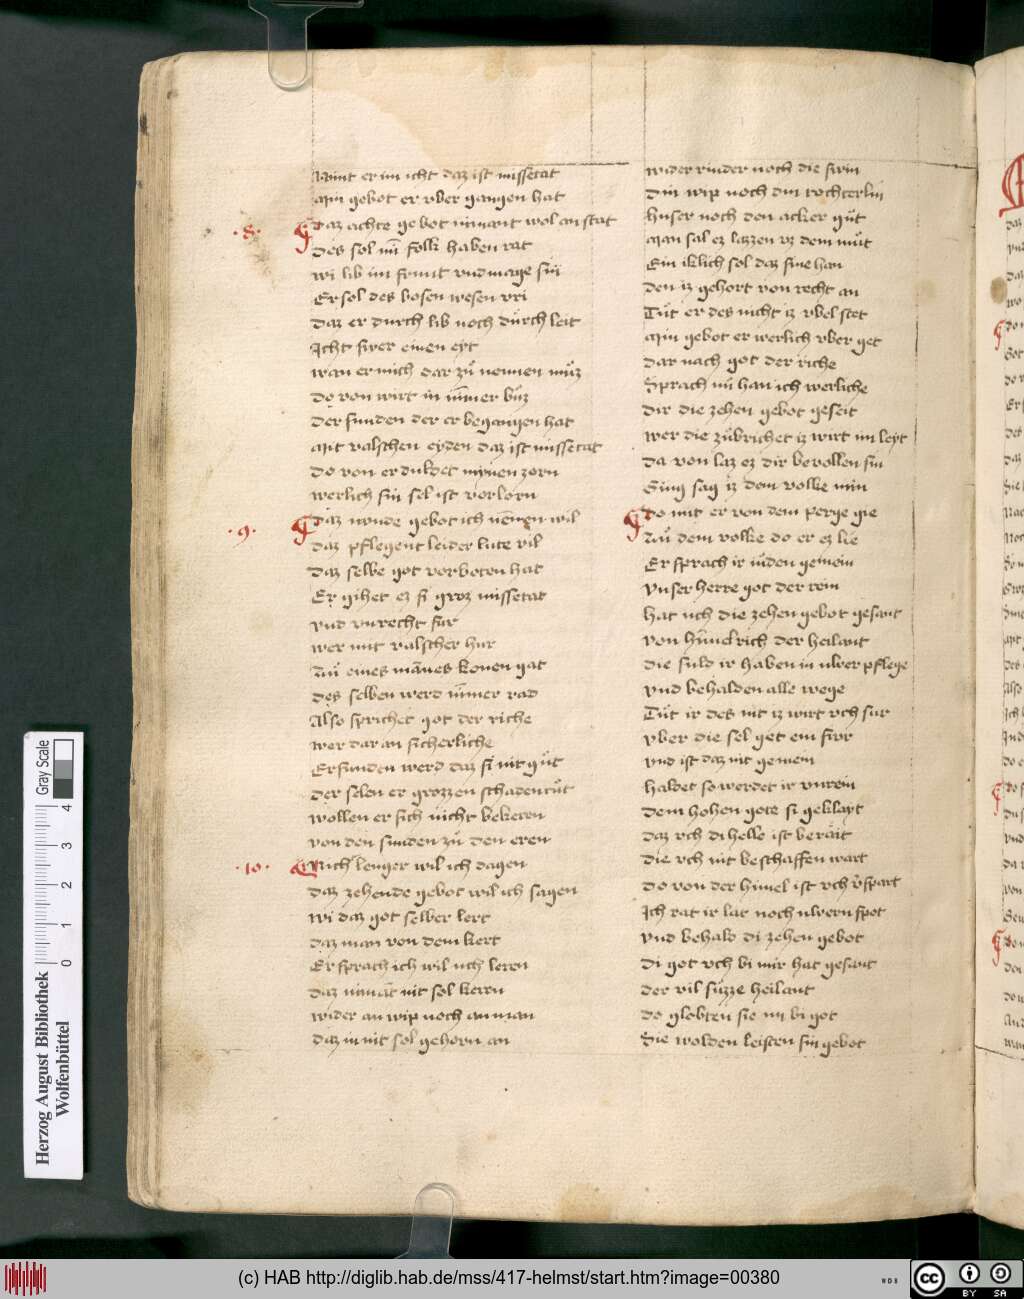 Nimt er im icht daz ist missetat
Min gebot er vber gangen hat
·8· Daz achte gebot nimant wol an stat
des sol mī folk haben rat
wi lib im frunt vnd mage sin
Er sol des bosen wesen vri
Daz er durch lib noch durch leit
Icht swer einen eyt
wan er mich dar zů nennen můz
do von wirt im im̄er bůz
der sunden der er begangen hat
Mit valschen eyden daz ist missetat
do von er duldet mynen zorn
werlich sin sel ist vorlorn
·9· Daz nunde gebot ich nēnen wil
daz pflegent leider lute vil
Daz selbe got vorboten hat
Er gihet ez si groz missetat
vnd vnrecht fur
wer mit valscher hur
zů eines mānes konen gat
des selben werd im̄er rad
Also sprichet got der riche
wer dar an sicherliche
Erfunden werd daz si nit gůt
der selen er grozzen schaden tůt
wollen er sich nicht bekeren
von den sunden zů den eren
·10· Nich lenger wil ich dagen
daz zehende gebot wil ich sagen
wi daz got selber lert
daz man von dem kert
Er sprach ich wil uch leren
daz nimāt nit sol keren
wider an wip noch an man
daz im nit sol gehorn an
wider rinder noch die swin
Din wip noch din tochterlin
huser noch den acker gůt
Man sal ez lazzen vz dem můt
Ein iklich sol daz sine han
den iz gehort von recht an
Tůt er des nicht iz vbel stet
Min gebot er werlich vber get
dar nach got der riche
Sprach nů han ich werliche
dir die zehen gebot geseit
wer die zůbrichet iz wirt im leyt
da von laz ez dir bevollen sin
Ging sag iz dem volke min
Do mit er von dem perge gie
zů dem volke do er ez lie
Er sprach ir iůden gemein
vnser herre got der rein
hat uch die zehen gebot gesant
von himelrich der heilant
die sult ir haben in uwer pflege
vnd behalden alle wege
Tůt ir des nit iz wirt vch sur
vber die sel get ein fiwr
vnd ist daz nit gemein
haldet so werdet ir vnrein
dem hohen gote si geklayt
daz vch di helle ist berait
die vch nit beschaffen wart
do von der himel ist vch v̄spart
Ich rat ir lat noch uwern spot
vnd behald di zehen gebot
di got vch bi mir hat gesant
der vil sůzze heilant
do globten sie im bi got
Sie wolden leisten sin gebot
Herzog August Bibliothek
Wolfenbüttel
0 1 2 3 4
Gray Scale
(c) HAB http://diglib.hab.de/mss/417-helmst/start.htm?image=00380
WDB
cc BY SA